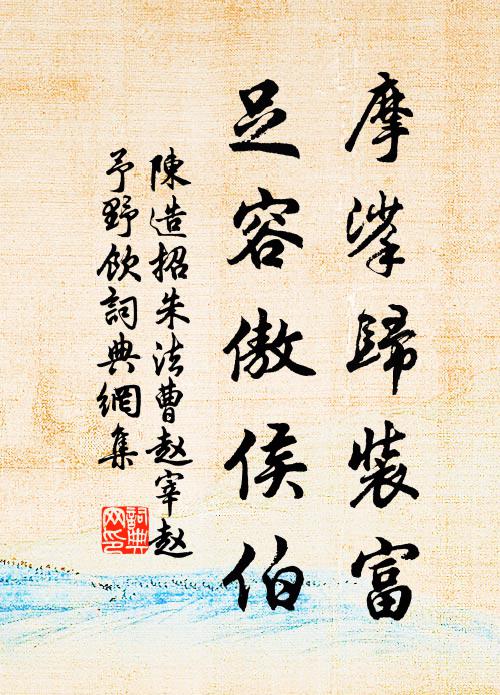 摩挲歸裝富
足容傲侯伯
陳造招朱法曹赵宰赵
予野飲詞典網集
詞典